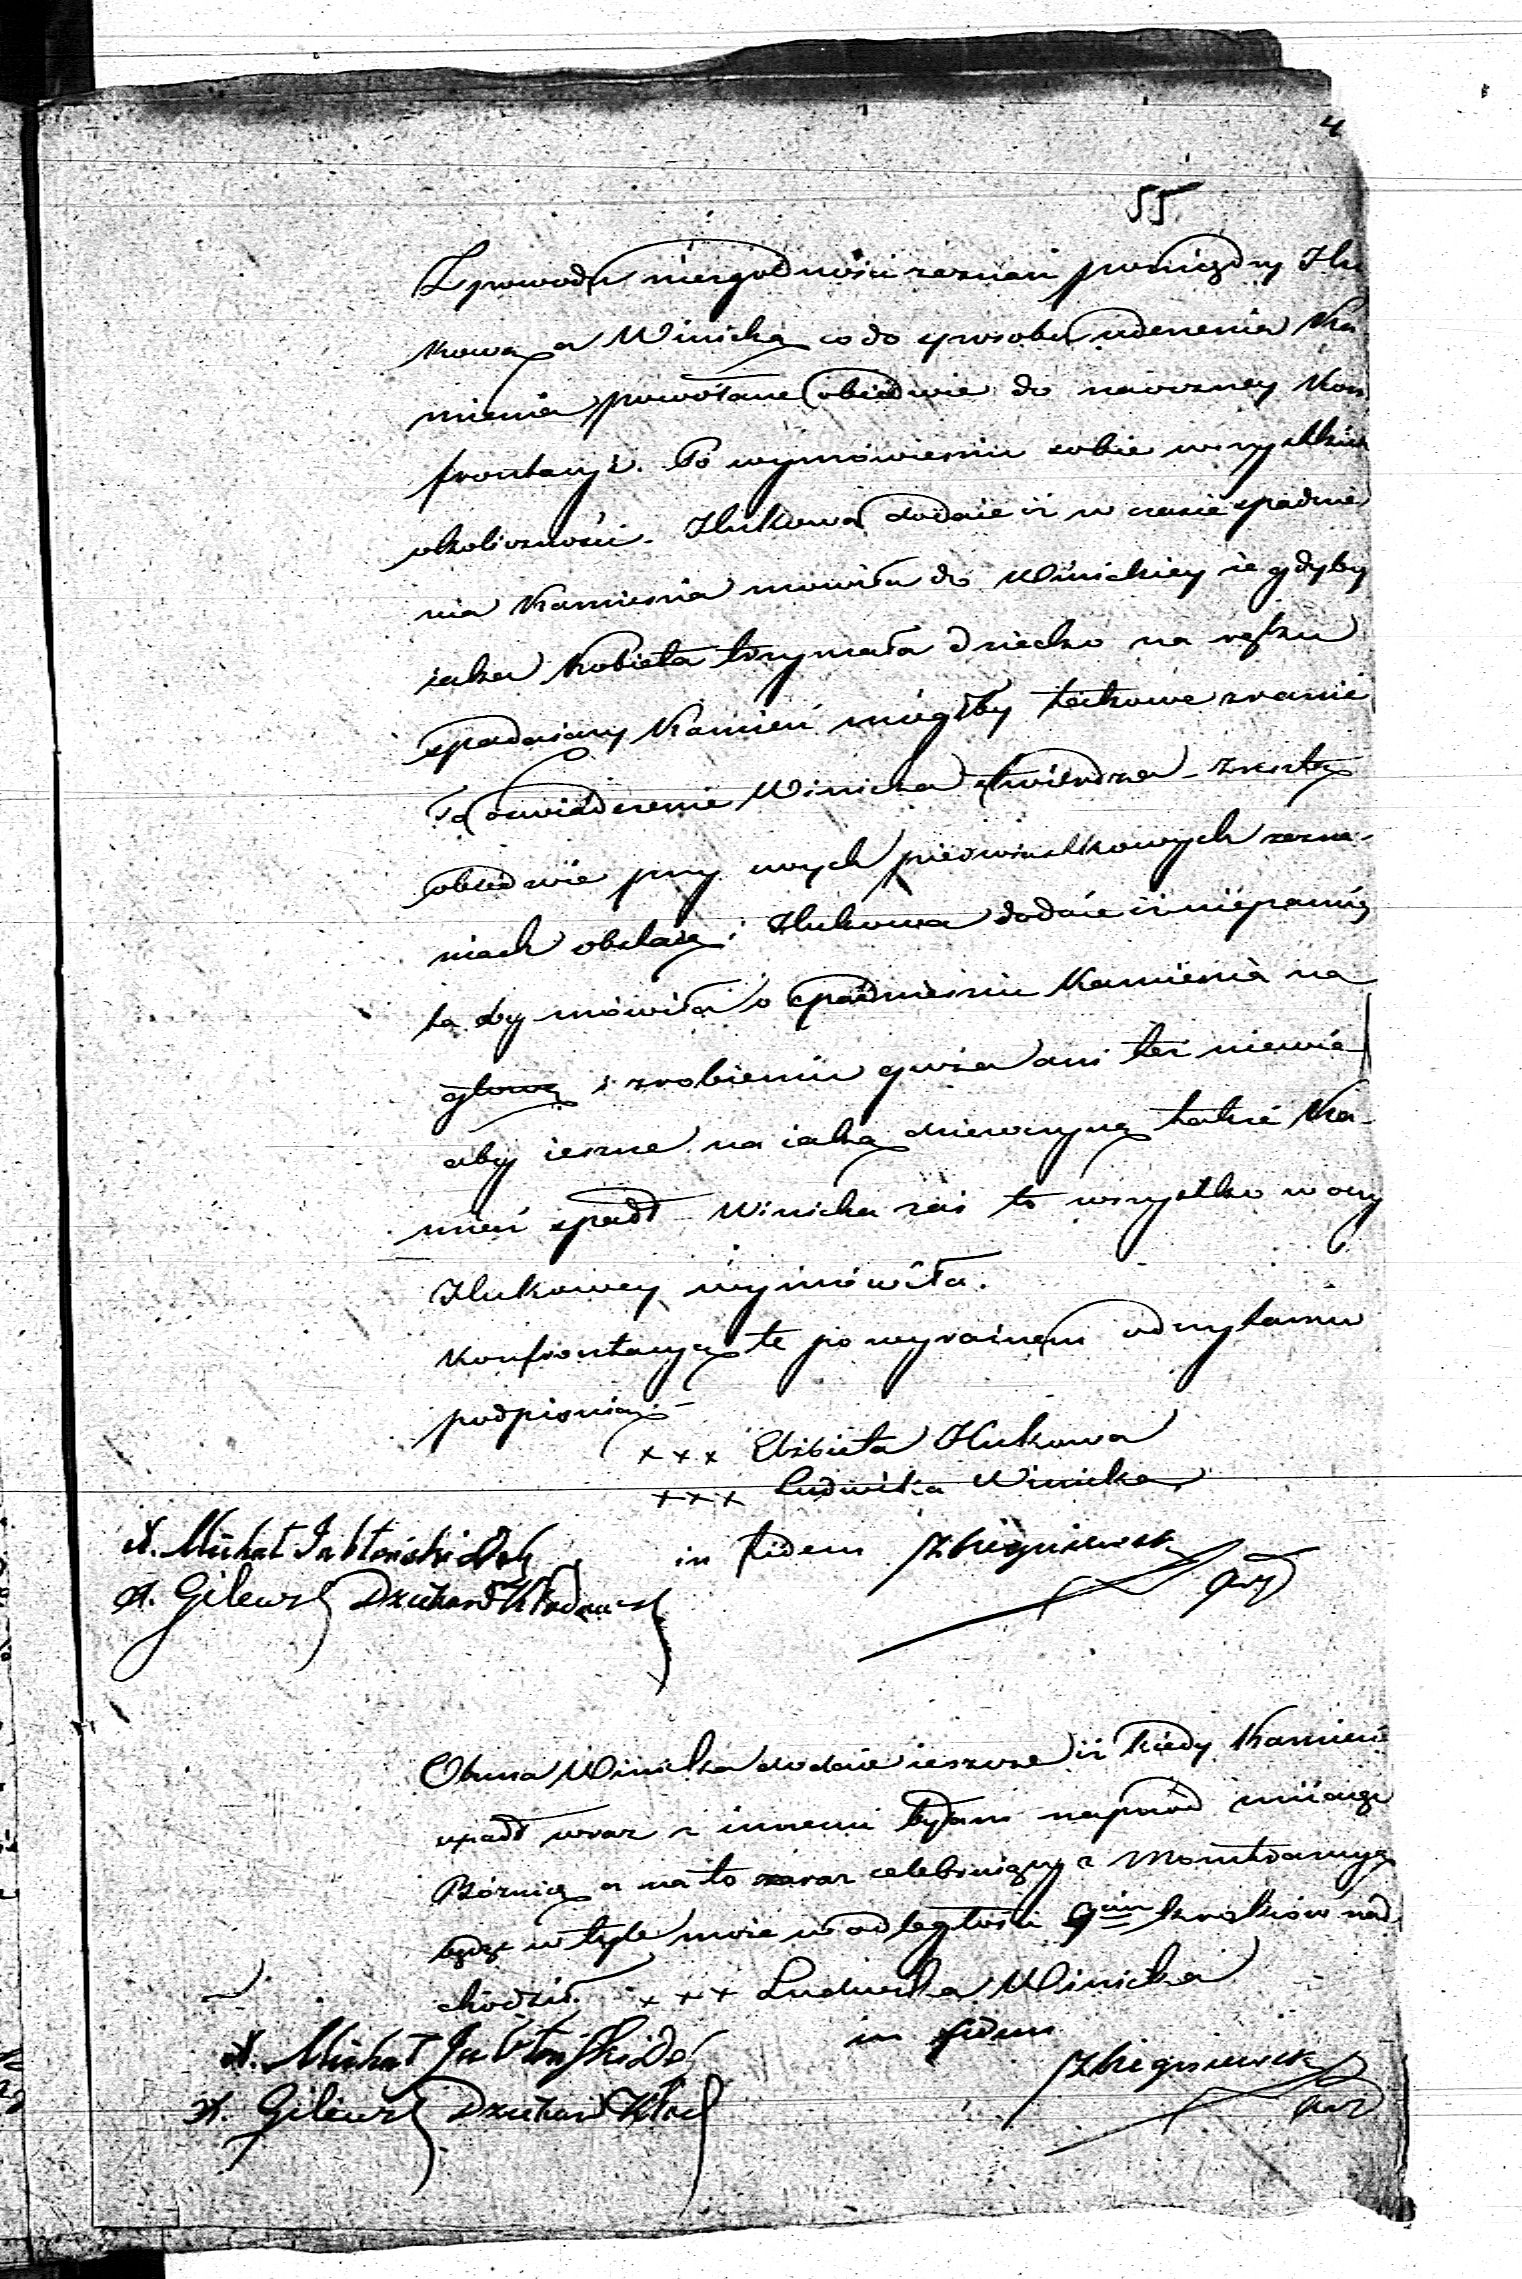 4
55
Z powodu niezgodności zeznań pomiędzy Huk
kową a Winicką co do sposobu uderzenia Ka
mienia powołane obiedwie do naoczney Kon
frontacyi. Po wymówieniu sobie wszystkich
okoliczności. Hukowa dodaie iż w czasie spadnie
nia Kamienia mówiła do Winickiey że gdyby
iaka Kobieta trzymała dziecko na ręku
spadaiący Kamień mógłby takowe zranić
To oświadczenie Winicka stwierdza – zresztą
obiedwie przy swych pierwiastkowych zezna-
niach obstaią; Hukowa dodaie iż niepamię
ta aby mówiła o spadnieniu Kamienia na
głowę i zrobieniu guza ani też niewie
aby ieszcze na iaką dziewczynę także Ka-
mień spadł – Winicka zaś to wszystko w oczy
Hukowey wymówiła.
Konfrontacyą tę po wyraźnem odczytaniu
podpisuią –
+++ Elżbieta Hukowa
+++ Ludwika Winicka
in fidem
x. Michał Jabłoński
x. Gilewski
Obecna Winicka dodaie ieszcze iż kiedy Kamień
spadł wraz z innemi byłam naprzód miiaiąc
Bóżnicę a na to zaraz celebruiący z Monstrancyą
będąc w tyle może w odległości kroków nad
chodził. +++ Ludwika Winicka
in fidem
x. Michał Jabłoński
x. Gilewski